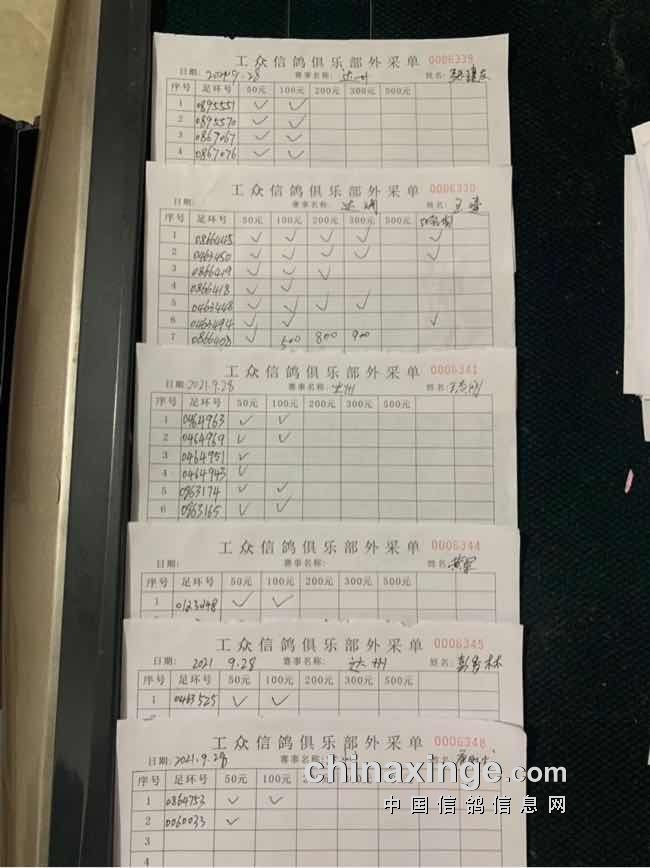 工众信鸽俱乐部外采单 0006339
日期: 2021.9.28 赛事名称: 达州 姓名:
序号 足环号 50元 100元 200元 300元 500元
1 0895551 ✓ ✓
2 0895570 ✓ ✓
3 0867067 ✓ ✓
4 0867076 ✓ ✓
工众信鸽俱乐部外采单 0006330
日期: 赛事名称: 达州 姓名:
序号 足环号 50元 100元 200元 300元 500元
1 0866445 ✓ ✓ ✓ ✓ ✓
2 0463450 ✓ ✓ ✓ ✓ ✓
3 0866419 ✓ ✓ ✓
4 0866418 ✓ ✓
5 0463448 ✓ ✓ ✓ ✓
6 0463494 ✓ ✓ ✓
7 0866408 ✓ 500 800 900
工众信鸽俱乐部外采单 0006341
日期: 2021.9.28 赛事名称: 达州 姓名:
序号 足环号 50元 100元 200元 300元 500元
1 0464963 ✓ ✓
2 0464969 ✓ ✓
3 0464951 ✓
4 0464943 ✓
5 0863174 ✓ ✓
6 0863165 ✓ ✓
工众信鸽俱乐部外采单 0006344
日期: 赛事名称: 姓名: 黄军
序号 足环号 50元 100元 200元 300元 500元
1 0123248 ✓ ✓
工众信鸽俱乐部外采单 0006345
日期: 2021 9.28 赛事名称: 达州 姓名:
序号 足环号 50元 100元 200元 300元 500元
1 0463525 ✓ ✓
工众信鸽俱乐部外采单 0006348
日期: 2021.9.28
序号 足环号 50元 100元
1 0864753 ✓ ✓
2 0060033 ✓
3
4
chinaxinge.com
中国信鸽信息网